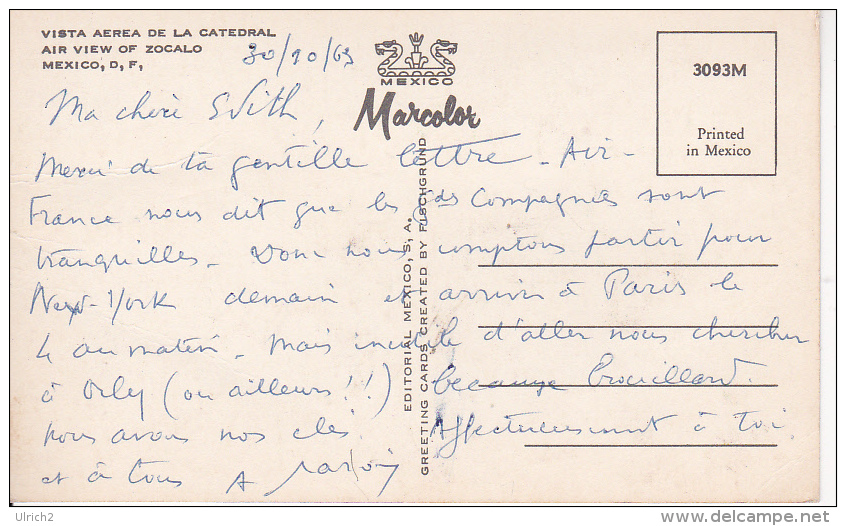 VISTA AEREA DE LA CATEDRAL
AIR VIEW OF ZOCALO
MEXICO, D, F,
30/10/63
MEXICO
Marcolor
3093M
Printed
in Mexico
EDITORIAL MEXICO, S, A.
GREETING CARDS CREATED BY FISCHGRUND
Ma chère Edith,
Merci de ta gentille lettre - Air-
France nous dit que les gdes Compagnies sont
tranquilles - Donc nous comptons partir pour
New-York demain et arriver à Paris le
4 au matin - Mais inutile d'aller nous chercher
à Orly (ou ailleurs!!) because brouillard.
nous avons nos clés. Affectueusement à toi
et à tous
Ulrich2
www.delcampe.net